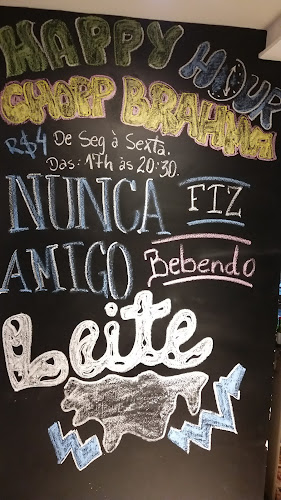 HAPPY HOUR
CHOPP BRAHMA
R$4 De Seg à Sexta.
Das: 17h às 20:30.
NUNCA FIZ
AMIGO Bebendo
Leite